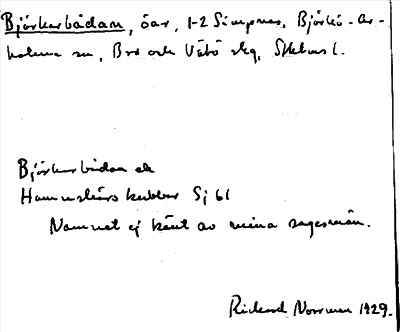 Björkerbådan, öar, 1-2 Simpnäs, Björkö-Ar-
holma sn, Bro och Vätö skg, Sthlms l.
Björkerbådan
Hammarskärs kubbar Sj 61
Namnet ej känt av mina sagesmän.
Rickard Norrman 1929.